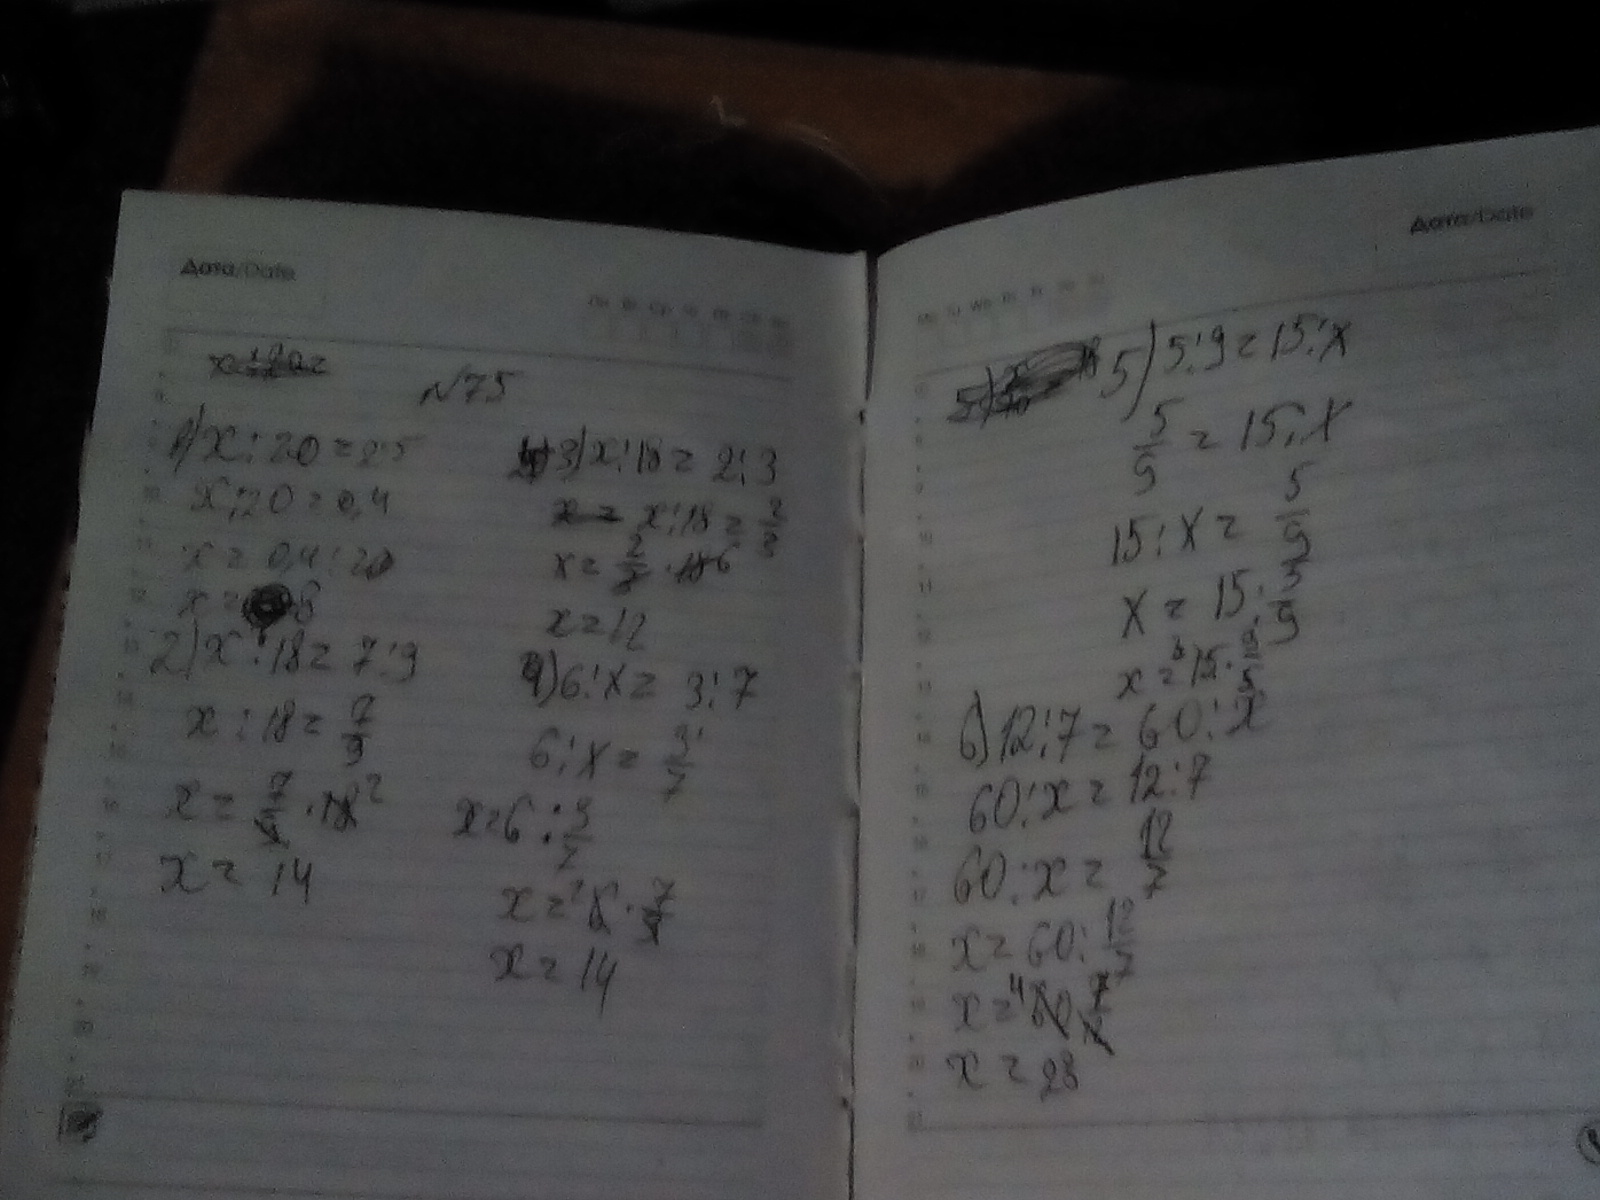 Дата/Date
№75
1) x:20=2:5
x:20=0,4
x=0,4:20
x=8
2) x:18=7:9
x:18=7/9
x=7/9·18 2
x=14
3) x:18=2:3
x:18=2/3
x=2/3·18 6
x=12
4) 6:x=3:7
6:x=3/7
x=6:3/7
x=2 6·7/3
x=14
Дата/Date
5) 5:9=15:x
5/9=15:x
15:x=5/9
x=15:5/9
x=3 15·9/5
6) 12:7=60:x
60:x=12:7
60:x=12/7
x=60:12/7
x=4 60 7/12
x=28